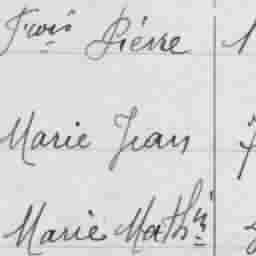 Frçois Pierre 1
Marie Jean 7
Marie Math